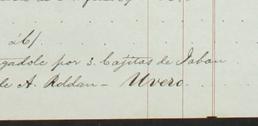 26/
gadole por 3. Cajitas de Jabon
de A. Roldan - Uvero.